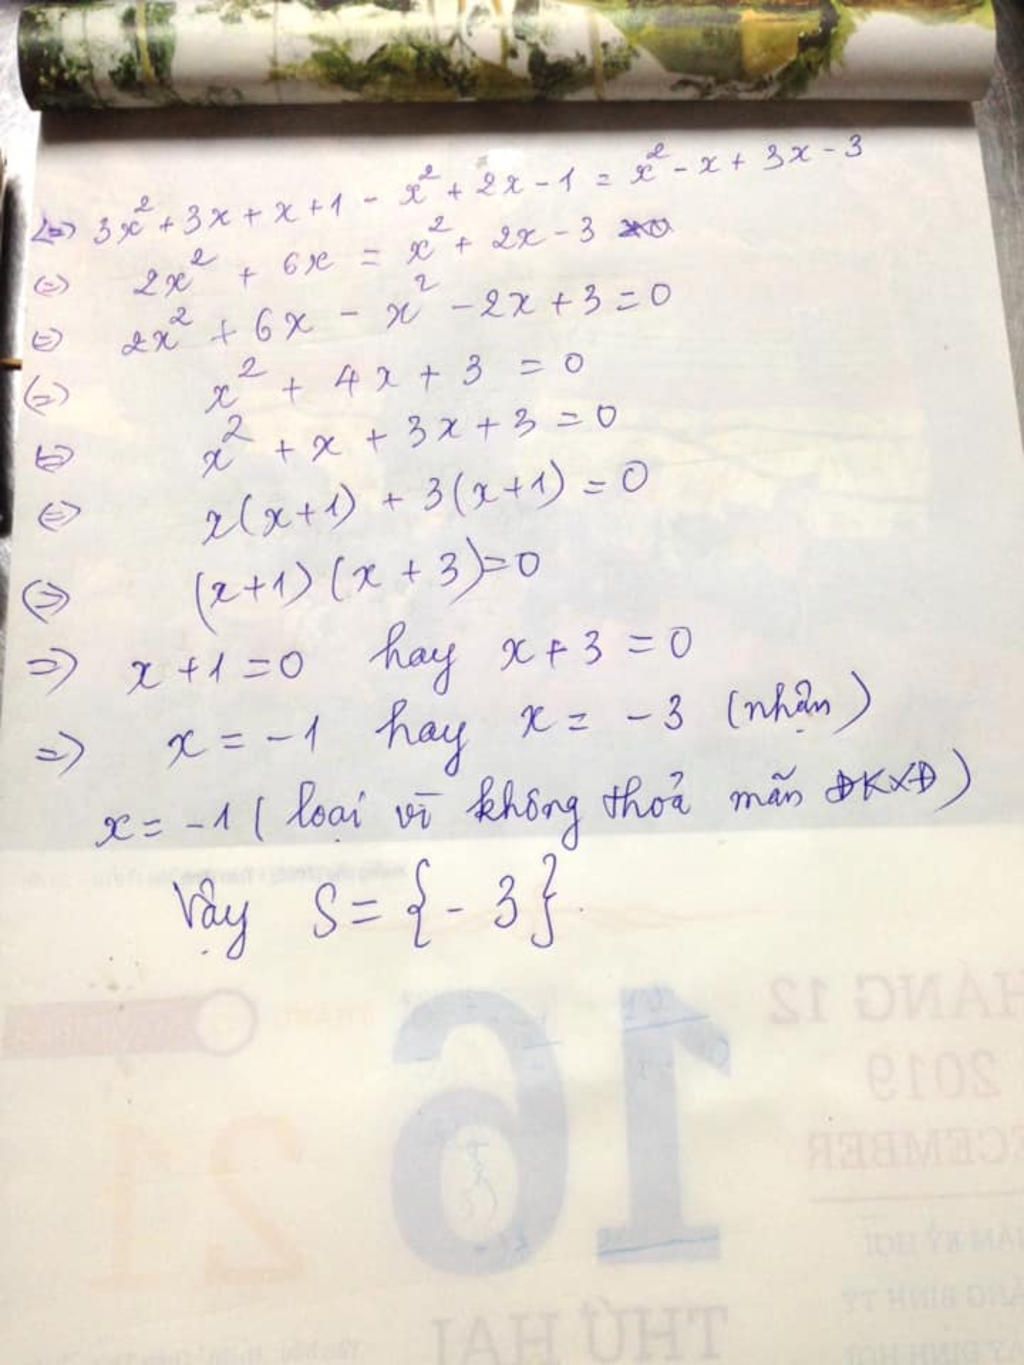 <=> 3x² + 3x + x + 1 - x² + 2x - 1 = x² - x + 3x - 3
<=> 2x² + 6x = x² + 2x - 3
<=> 2x² + 6x - x² - 2x + 3 = 0
<=> x² + 4x + 3 = 0
<=> x² + x + 3x + 3 = 0
<=> x(x+1) + 3(x+1) = 0
<=> (x+1)(x+3)=0
=> x+1=0 hay x+3=0
=> x = -1 hay x = -3 (nhận)
x = -1 ( loại vì không thoả mãn ĐKXĐ)
Vậy S = {-3}.
16
HÁNG 12
2019
ECEMBER
21
THỨ HAI